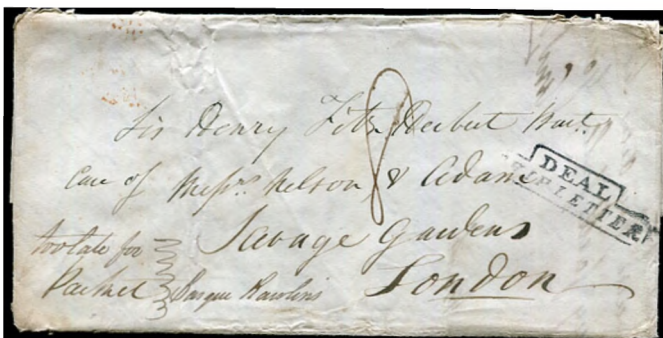 Sir Henry Fitz Herbert Bart.
8
Care of Messrs. Nelson & Adam
DEAL
SHIP LETTER
Savage Gardens
London
too late for
Packet
Barque Rawlins